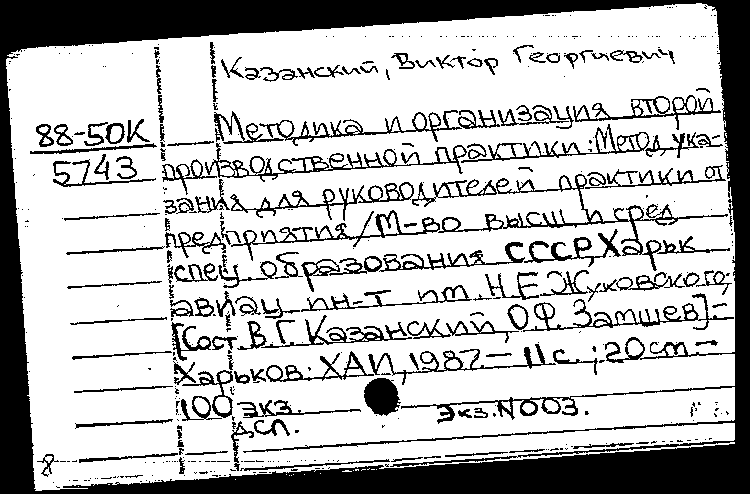 Казанский, Виктор Георгиевич
88-50К
5743
Методика и организация второй
производственной практики: Метод. ука-
зания для руководителей практики от
предприятия / М-во высш. и сред.
спец. образования СССР, Харьк.
авиац. ин-т им. Н. Е. Жуковского;
[Сост. В. Г. Казанский, О.Ф. Затшев]. -
Харьков: ХАИ, 1987. - 11 с.; 20 см. -
100 экз.
Экз. N003.
Дсп.
8